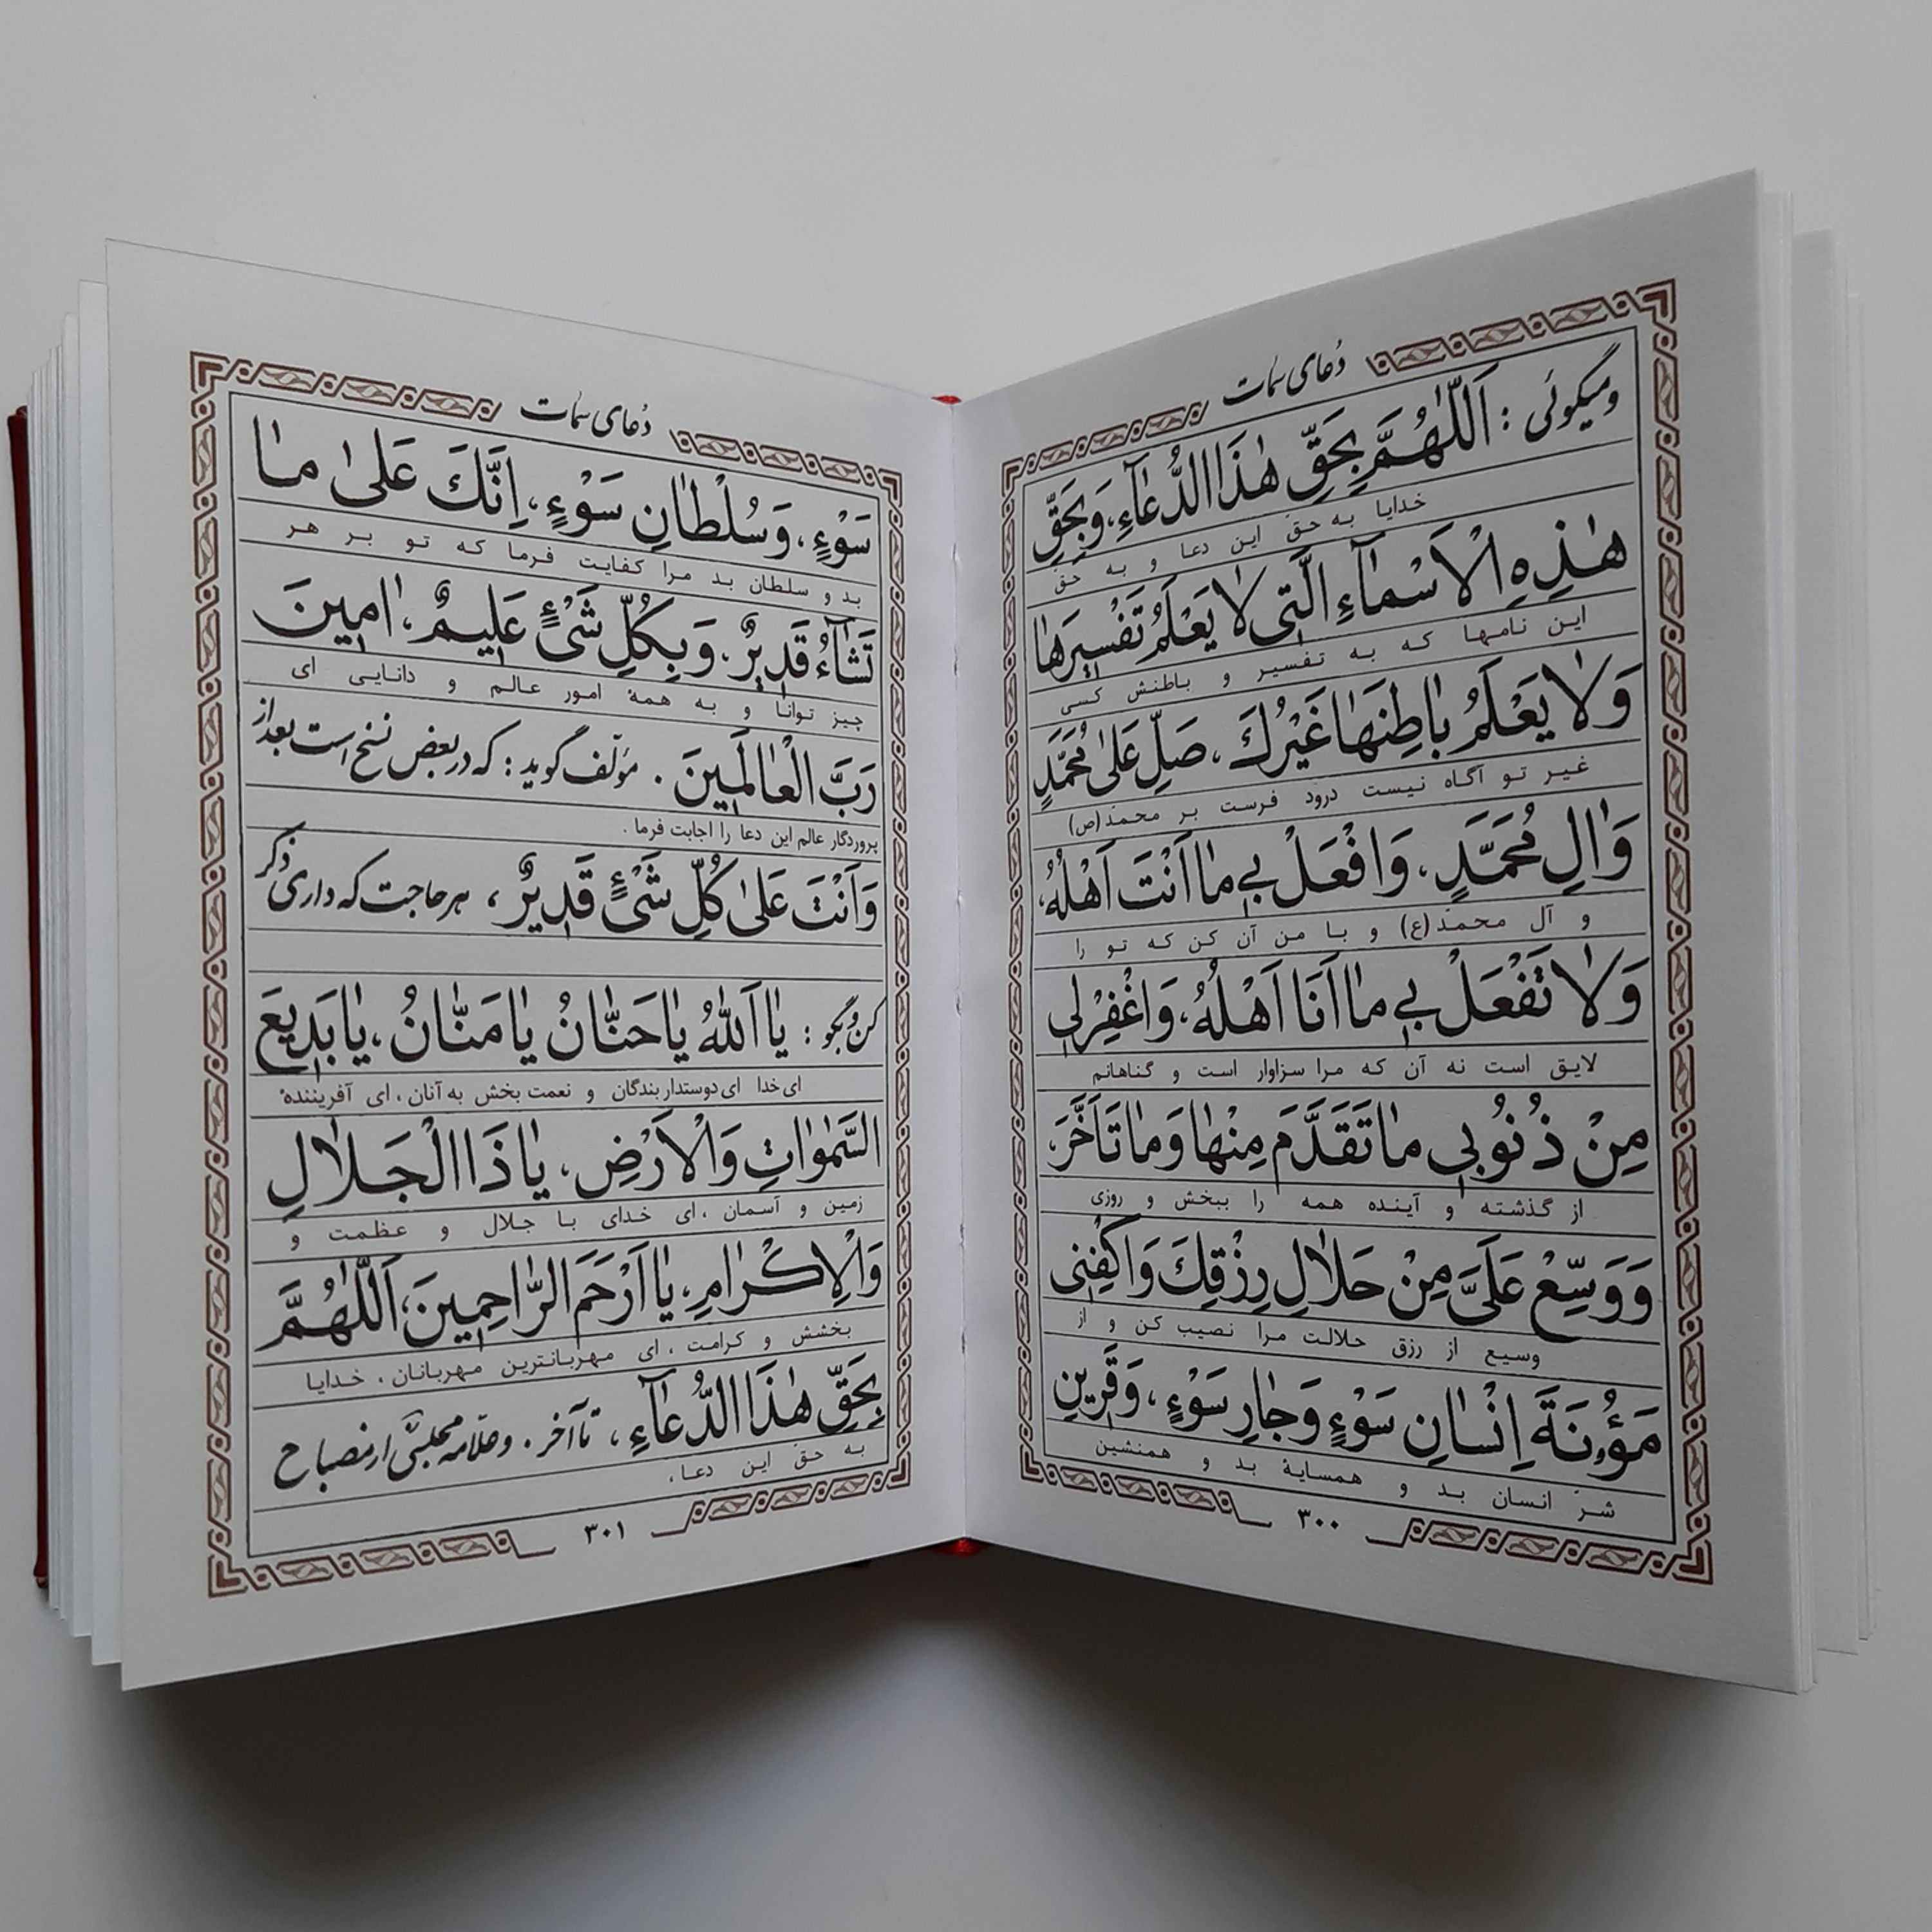 دعای سمات
و میگوئی : اَللّٰهُمَّ بِحَقِّ هٰذَا الدُّعآءِ، وَ بِحَقِّ
خدایا به حقّ این دعا و به حقّ
هٰذِهِ الْاَسْمآءِ الَّتی لا یَعْلَمُ تَفْسیرَها
این نامها که به تفسیر و باطنش کسی
وَلا یَعْلَمُ باطِنَها غَیْرُكَ، صَلِّ عَلیٰ مُحَمَّدٍ
غیر تو آگاه نیست درود فرست بر محمّد (ص)
وَالِ مُحَمَّدٍ، وَافْعَلْ بی ما اَنْتَ اَهْلُهُ،
و آل محمّد (ع) و با من آن کن که تو را
وَلا تَفْعَلْ بی ما اَنَا اَهْلُهُ، وَاغْفِرْ لی
لایق است نه آن که مرا سزاوار است و گناهانم
مِنْ ذُنُوبی ما تَقَدَّمَ مِنْها وَما تَاَخَّرَ،
از گذشته و آینده همه را ببخش و روزی
وَ وَسِّعْ عَلَیَّ مِنْ حَلالِ رِزْقِكَ وَاكْفِنی
وسیع از رزق حلالت مرا نصیب کن و از
مَؤُنَةَ اِنْسانِ سَوْءٍ وَجارِ سَوْءٍ، وَقَرینِ
شرّ انسان بد و همسایهٔ بد و همنشین
٣٠٠
دعای سمات
سَوْءٍ، وَسُلْطانِ سَوْءٍ، اِنَّكَ عَلیٰ ما
بد و سلطان بد مرا کفایت فرما که تو بر هر
تَشآءُ قَدیرٌ، وَبِكُلِّ شَیْءٍ عَلیمٌ، امینَ
چیز توانا و به همهٔ امور عالم و دانایی ای
رَبَّ الْعالَمینَ . مؤلّف گوید : که در بعض نسخ است بعد از
پروردگار عالم این دعا را اجابت فرما .
وَاَنْتَ عَلیٰ كُلِّ شَیْءٍ قَدیرٌ ، هر حاجت که داری ذکر
کن و بگو : یا اَللّٰهُ یا حَنّانُ یا مَنّانُ، یا بَدیعَ
ای خدا ای دوستدار بندگان و نعمت بخش به آنان ، ای آفرینندهٔ
السَّمٰواتِ وَالْاَرْضِ، یا ذَا الْجَلالِ
زمین و آسمان ، ای خدای با جلال و عظمت و
وَالْاِكْرامِ، یا اَرْحَمَ الرّاحِمینَ، اَللّٰهُمَّ
بخشش و کرامت ، ای مهربانترین مهربانان ، خدایا
بِحَقِّ هٰذَا الدُّعآءِ ، تا آخر . و علّامه مجلسیؒ از مصباح
به حقّ این دعا ،
٣٠١